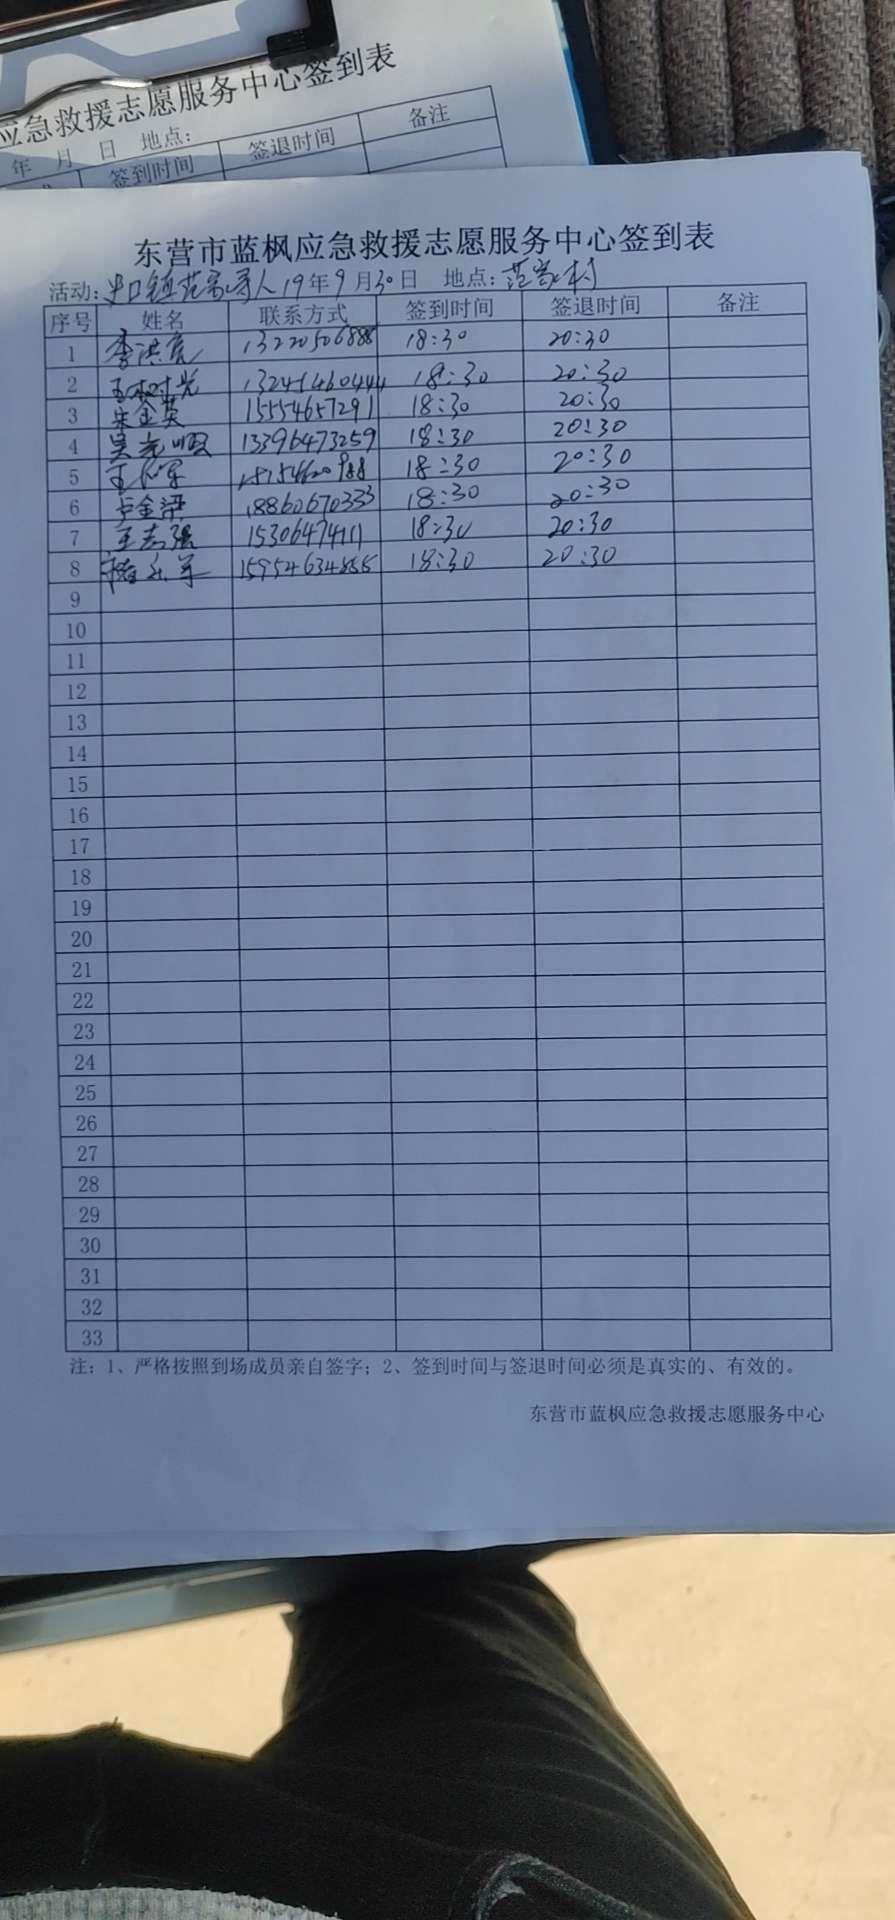 应急救援志愿服务中心签到表
年 月 日 地点：
签到时间 签退时间 备注
东营市蓝枫应急救援志愿服务中心签到表
活动：史口镇范家寻人 19年9月30日 地点：范家村
序号 姓名 联系方式 签到时间 签退时间 备注
1 李洪亮 13220506888 18:30 20:30
2 王树光 13241460444 18:30 20:30
3 朱金英 15554657291 18:30 20:30
4 吴光顺 13396473259 18:30 20:30
5 18:30 20:30
6 卢金梁 18860670333 18:30 20:30
7 王志强 15306474111 18:30 20:30
8 18:30 20:30
9
10
11
12
13
14
15
16
17
18
19
20
21
22
23
24
25
26
27
28
29
30
31
32
33
注：1、严格按照到场成员亲自签字；2、签到时间与签退时间必须是真实的、有效的。
东营市蓝枫应急救援志愿服务中心